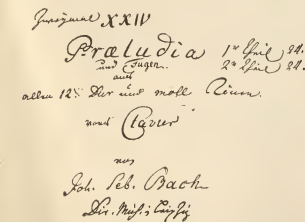 Zweymal XXIV
Præludia 1r Theil 24.
und Fugen. 2r Theil 24.
aus
allen 12 Dur und moll Tönen.
vors Clavier
von
Joh. Seb. Bach
Dir. Mus: i Leipzig